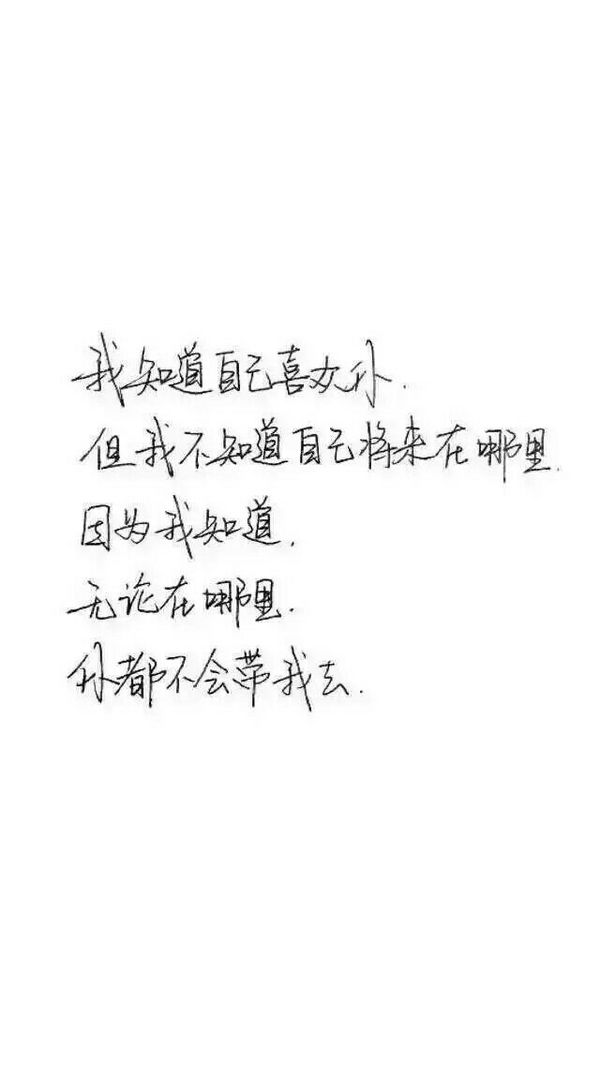 我知道自己喜欢你.
但我不知道自己将来在哪里.
因为我知道,
无论在哪里.
你都不会带我去.